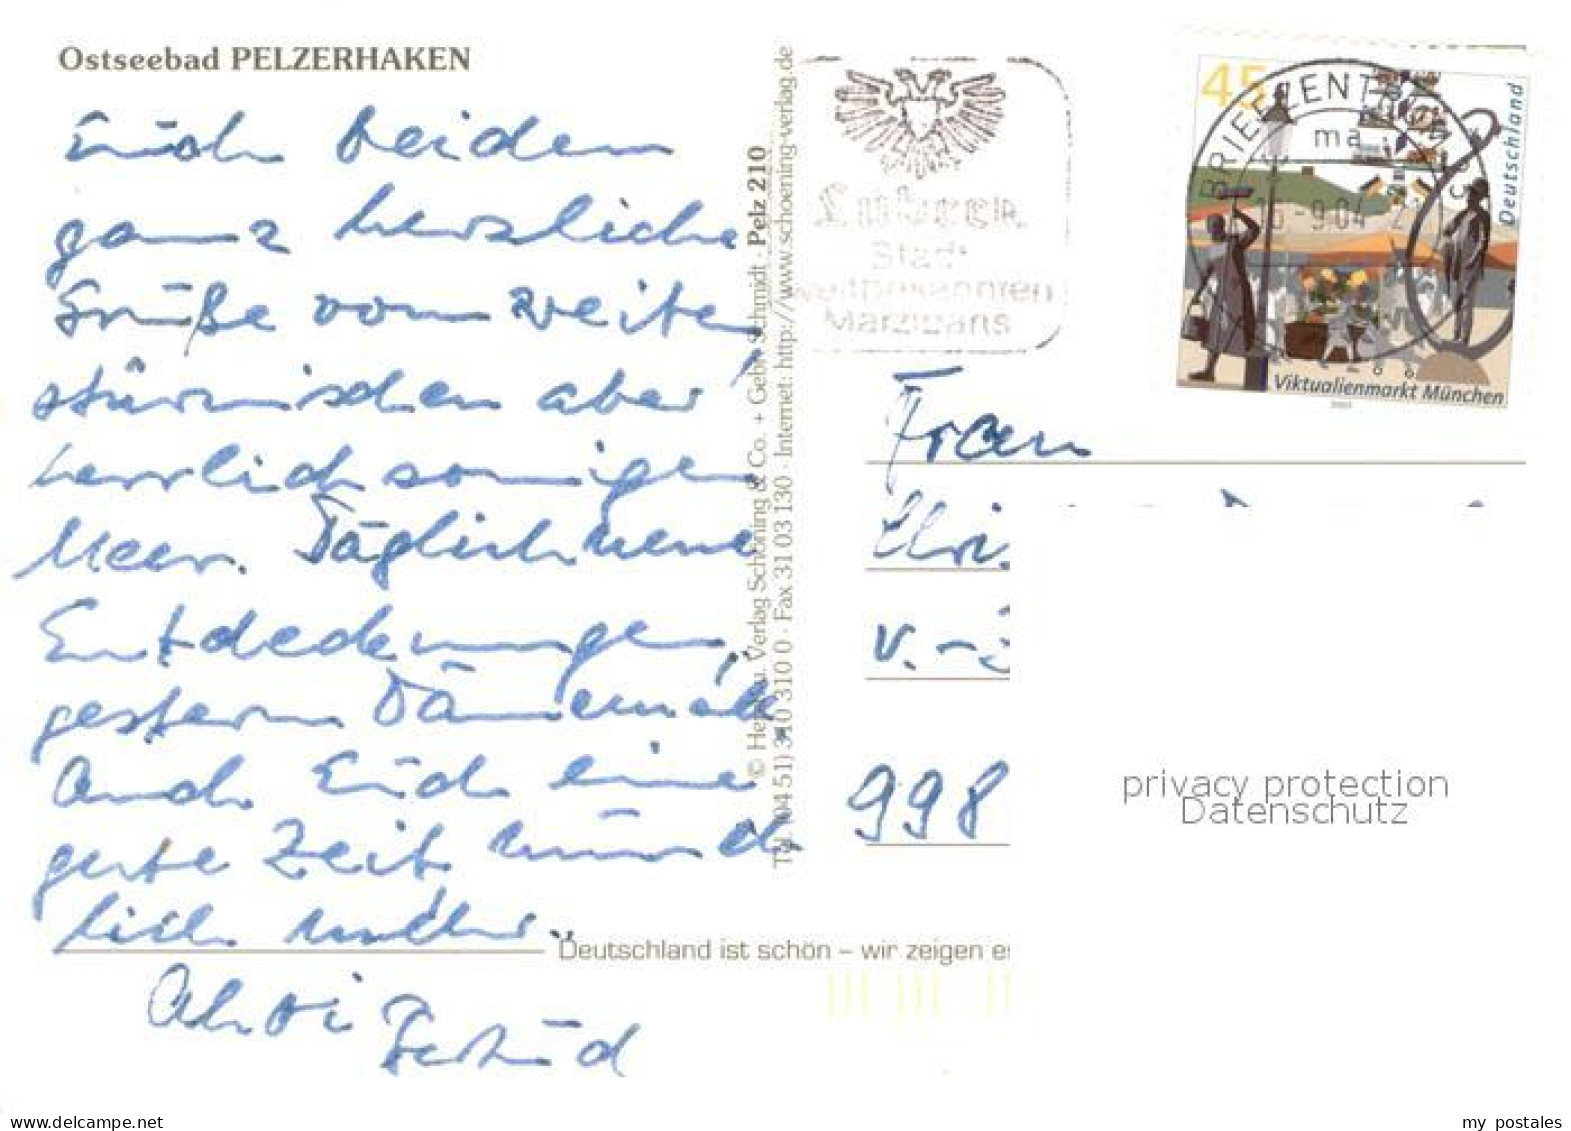 Ostseebad PELZERHAKEN
Euch beiden
ganz herzliche
Grüße vom weiten
stürmischen aber
herrlich sonnigen
Meer. Täglich neue
Entdeckungen,
gestern Dänemark
Auch Euch eine
gute Zeit münd
lich mehr.
Ahoi
© Hepp u. Verlag Schöning & Co. + Gebr. Schmidt · Pelz 210
Tel. (04 51) 3 10 310 0 · Fax 31 03 130 · Internet: http://www.schoening-verlag.de
Lübeck
Stadt
weltbekannten
Marzipans
45
Deutschland
BRIEFZENTRUM
ma
-9.04
Viktualienmarkt München
2003
Frau
v.-
998
privacy protection
Datenschutz
Deutschland ist schön – wir zeigen es
www.delcampe.net
my_postales